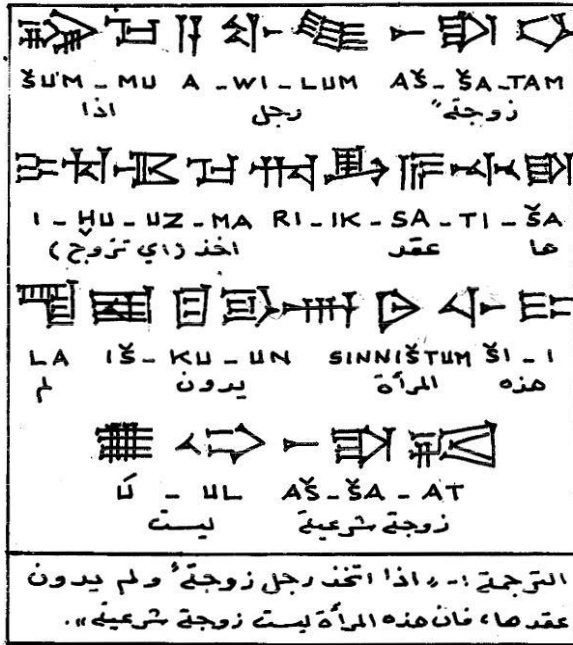 ŠUM - MU A - WI - LUM AŠ - ŠA - TAM
اذا رجل زوجةً
I - ḪU - UZ - MA RI - IK - SA - TI - ŠA
اخذ (اي تزوج) عقد ها
LA IŠ - KU - UN SINNIŠTUM ŠI - I
لم يدون المرأة هذه
Ú - UL AŠ - ŠA - AT
ليست زوجة شرعية
الترجمة :- «اذا اتخذ رجل زوجةً ولم يدون
عقدها، فان هذه المرأة ليست زوجة شرعية».